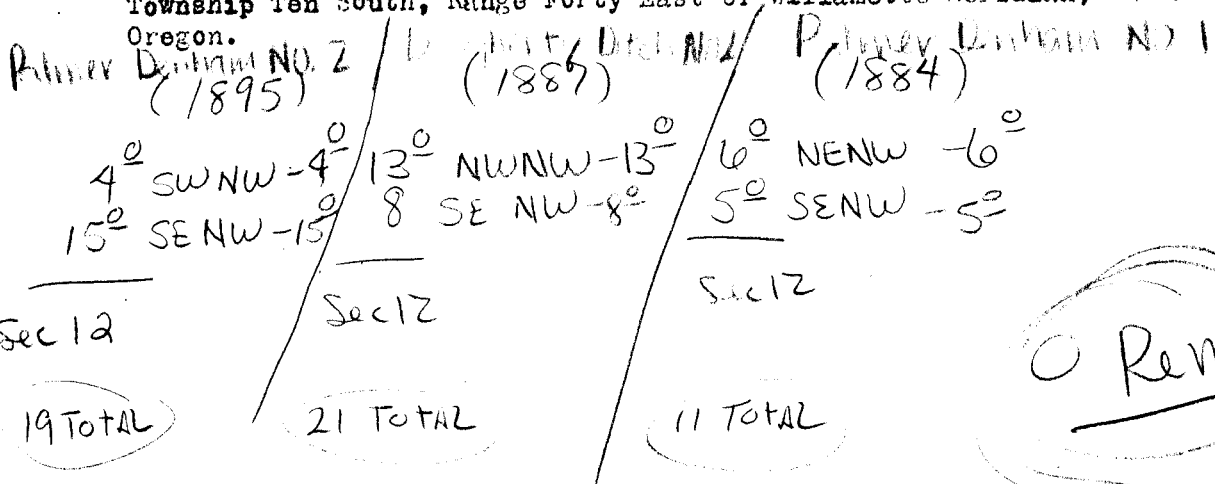 Township Ten South, Range Forty East of Willamette Meridian,
Oregon.
Palmer Denham NO. 2
(1895)
4º SWNW-4º
15º SENW-15º
Sec 12
19 TOTAL
Ditch No
13º NWNW-13º
8 SE NW-8º
Sec 12
21 TOTAL
Palmer Denham NO 1
(1884)
6º NENW -6º
5º SENW -5º
Sec 12
11 TOTAL
0